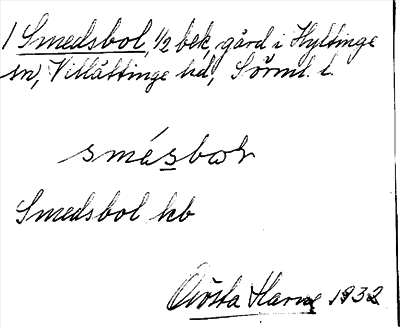 1 Smedsbol, 1/2 bek, gård i Hyltinge
sn, Villåttinge hd, Sörml. l.
smésbor
Smedsbol hb
Gösta Harne 1932